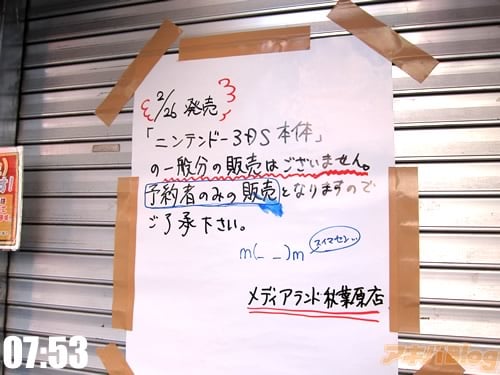 2/26 発売
「ニンテンドー3DS 本体」
の一般分の販売はございません。
予約者のみの販売となりますので
ご了承下さい。
m(_ _)m
スイマセン…
メディアランド秋葉原店
07:53
アキバBlog